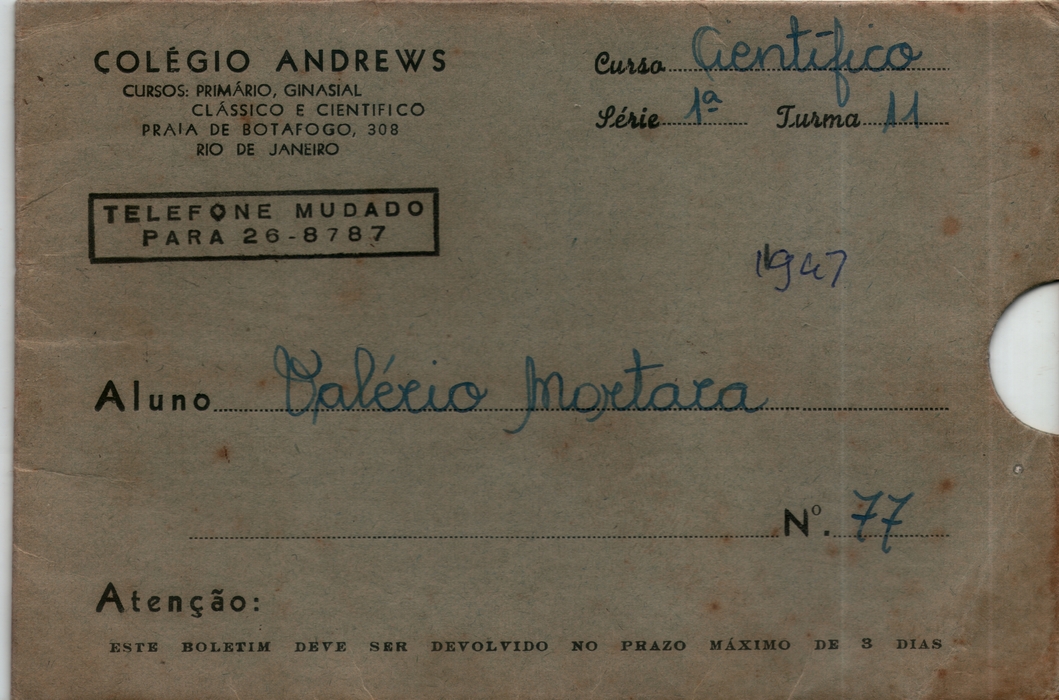 COLÉGIO ANDREWS
CURSOS: PRIMÁRIO, GINASIAL
CLÁSSICO E CIENTIFICO
PRAIA DE BOTAFOGO, 308
RIO DE JANEIRO
Curso Científico
Série 1ª Turma 11
TELEFONE MUDADO
PARA 26-8787
1947
Aluno Valério Mortara
Nº. 77
Atenção:
ESTE BOLETIM DEVE SER DEVOLVIDO NO PRAZO MÁXIMO DE 3 DIAS